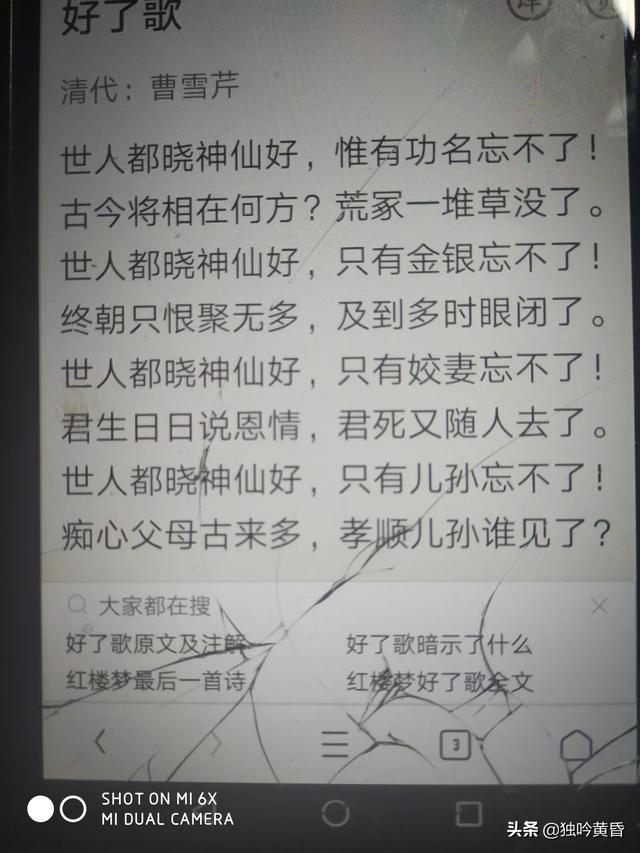 好了歌
译
清代：曹雪芹
世人都晓神仙好，惟有功名忘不了！
古今将相在何方？荒冢一堆草没了。
世人都晓神仙好，只有金银忘不了！
终朝只恨聚无多，及到多时眼闭了。
世人都晓神仙好，只有姣妻忘不了！
君生日日说恩情，君死又随人去了。
世人都晓神仙好，只有儿孙忘不了！
痴心父母古来多，孝顺儿孙谁见了？
大家都在搜
好了歌原文及注解 好了歌暗示了什么
红楼梦最后一首诗 红楼梦好了歌全文
3
SHOT ON MI 6X
MI DUAL CAMERA
头条 @独吟黄昏